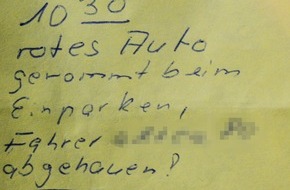 10 30
rotes Auto
gerammt beim
Einparken,
Fahrer
abgehauen?